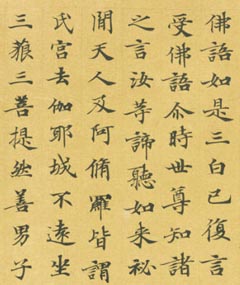 佛語如是三白已復言
受佛語尒時世尊知諸
之言汝等諦聽如来祕
間天人及阿脩羅皆謂
氏宮去伽耶城不遠坐
三藐三菩提然善男子